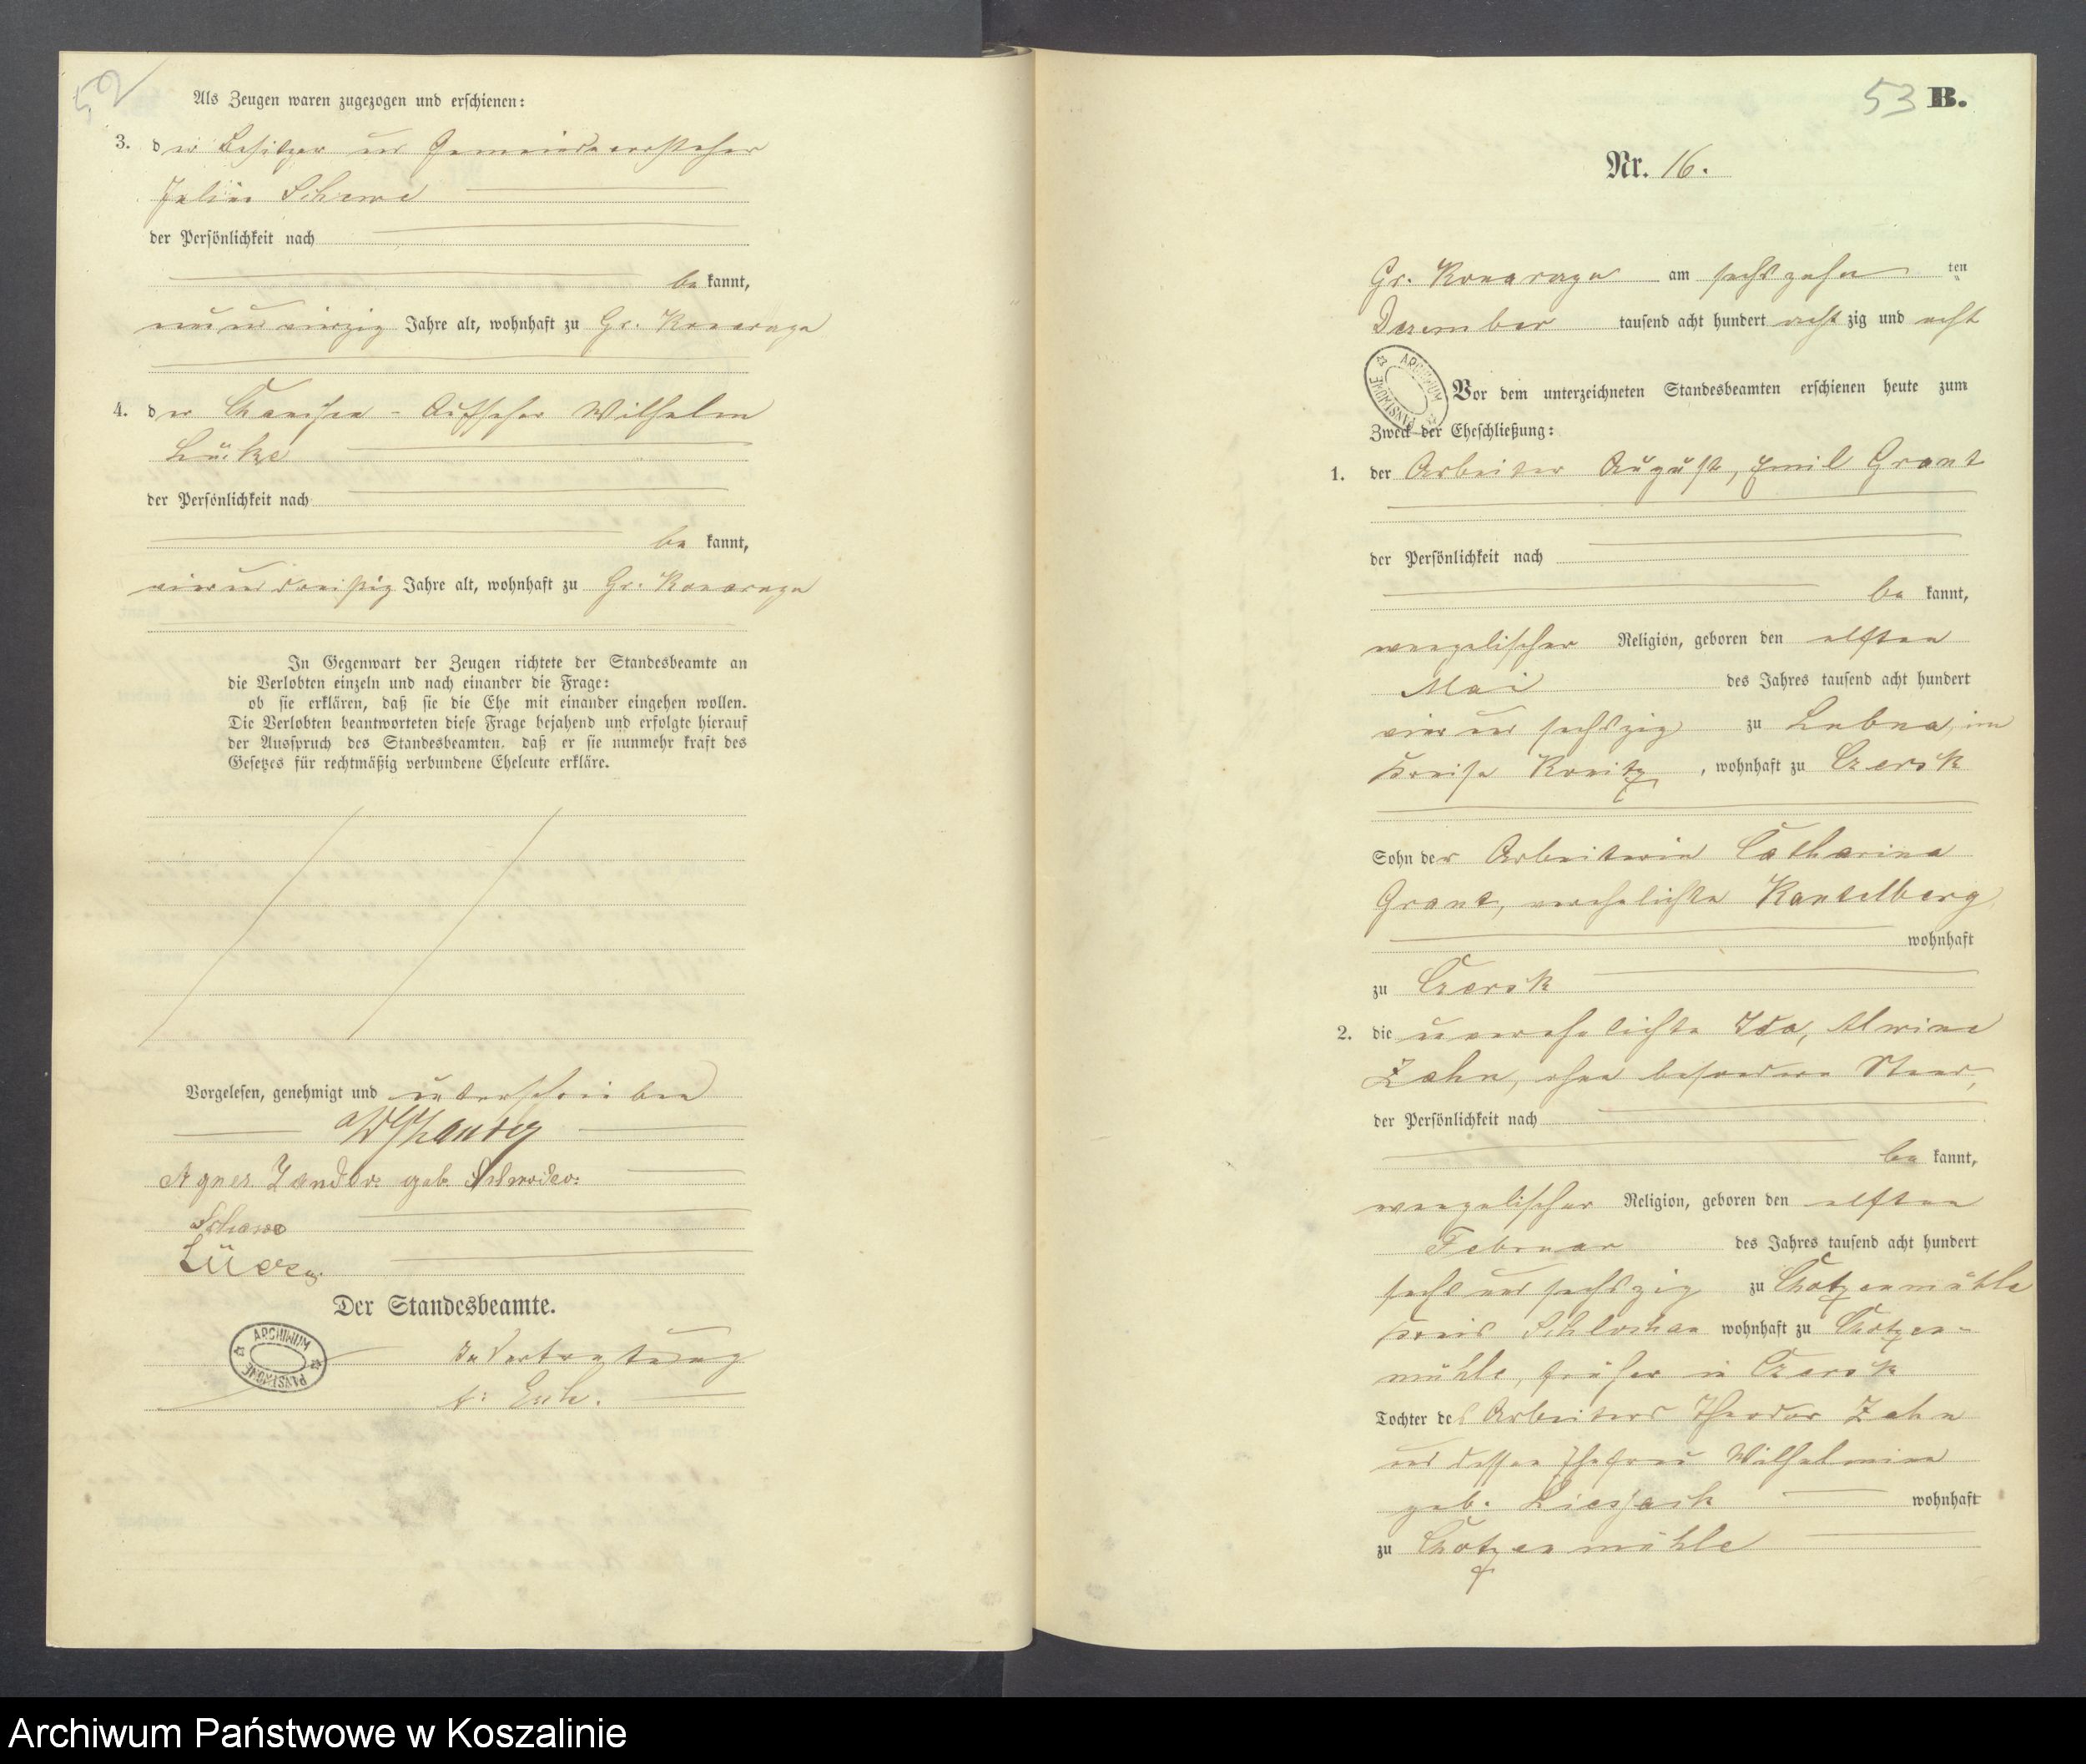 52
Als Zeugen waren zugezogen und erschienen:
3. der Besitzer und Gemeindevorsteher
Julius Schewe
der Persönlichkeit nach
be kannt,
neunundvierzig Jahre alt, wohnhaft zu Gr. Konarczyn
4. der Chaussee-Aufseher Wilhelm
Lüike
der Persönlichkeit nach
be kannt,
vierunddreißig Jahre alt, wohnhaft zu Gr. Konarczyn
In Gegenwart der Zeugen richtete der Standesbeamte an
die Verlobten einzeln und nach einander die Frage:
ob sie erklären, daß sie die Ehe mit einander eingehen wollen.
Die Verlobten beantworteten diese Frage bejahend und erfolgte hierauf
der Ausspruch des Standesbeamten, daß er sie nunmehr kraft des
Gesetzes für rechtmäßig verbundene Eheleute erkläre.
Vorgelesen, genehmigt und unterschrieben
Agnes Zander geb. Schröder
Schewe
Der Standesbeamte.
ARCHIWUM PAŃSTWOWE
In Vertretung
53 B.
Nr. 16.
Gr. Konarczyn am sechszehn ten
Dezember tausend acht hundert acht zig und acht
ARCHIWUM PAŃSTWOWE
Vor dem unterzeichneten Standesbeamten erschienen heute zum
Zweck der Eheschließung:
1. der Arbeiter August, Emil Grant
der Persönlichkeit nach
be kannt,
evangelischer Religion, geboren den elften
Mai des Jahres tausend acht hundert
vier und sechszig zu Lubna, im
Kreise Konitz, wohnhaft zu Czersk
Sohn der Arbeiterin Catharina
Grant, verehelichte Kantelberg
wohnhaft
zu Czersk
2. die unverehelichte Ida, Alwine
Zahn, ohne besonderen Stand,
der Persönlichkeit nach
be kannt,
evangelischer Religion, geboren den elften
Februar des Jahres tausend acht hundert
sechs und sechszig zu Chotzenmühle
Kreis Schlochau wohnhaft zu Chotzen-
mühle, früher in Czersk
Tochter des Arbeiters Theodor Zahn
und dessen Ehefrau Wilhelmine
geb. wohnhaft
zu Chotzenmühle
Archiwum Państwowe w Koszalinie